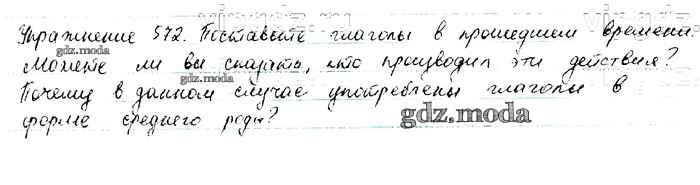 Упражнение 572. Поставьте глаголы в прошедшем времени.
gdz.moda
Можете ли вы сказать, кто производил эти действия?
gdz.moda
Почему в данном случае употреблены глаголы в
gdz.moda
форме среднего рода?